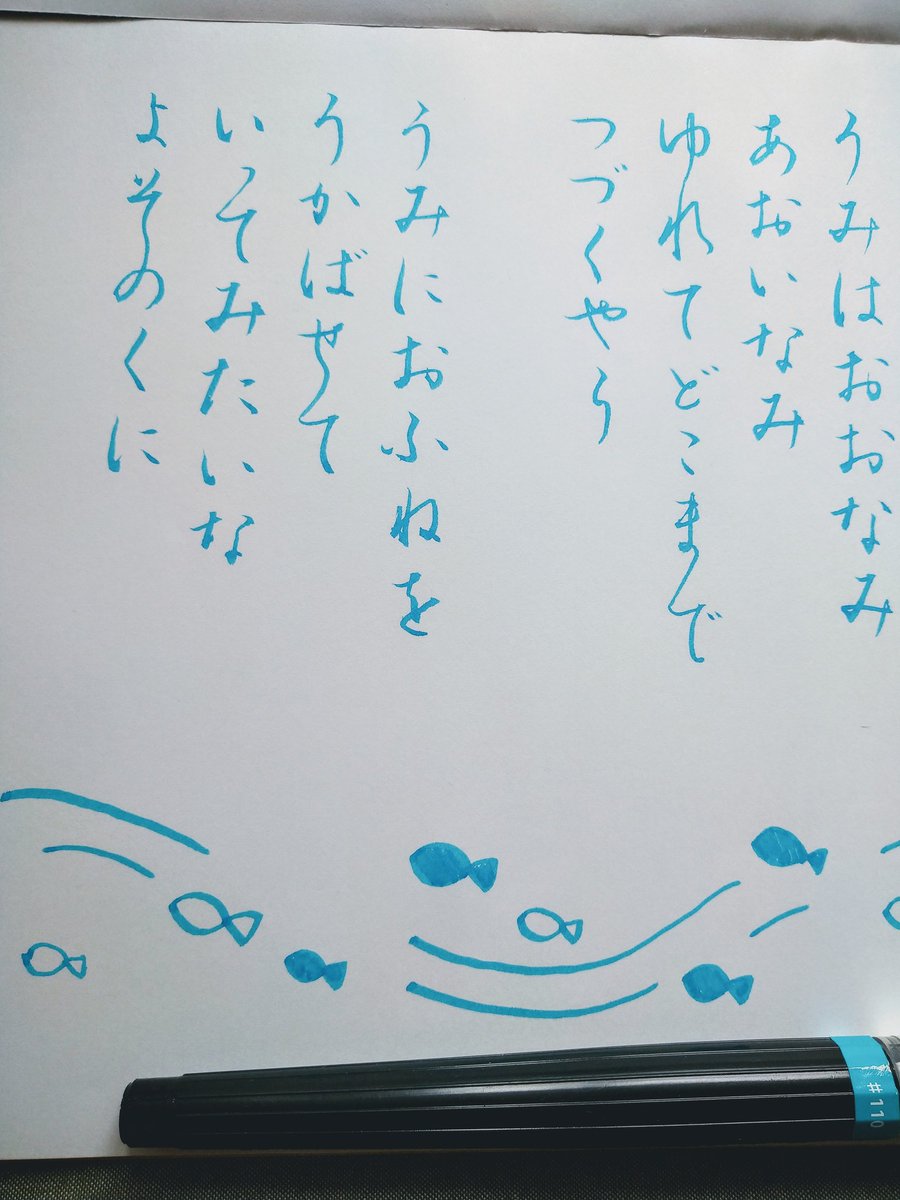 うみはおおなみ
あおいなみ
ゆれてどこまで
つづくやら
うみにおふねを
うかばせて
いってみたいな
よそのくに
#110